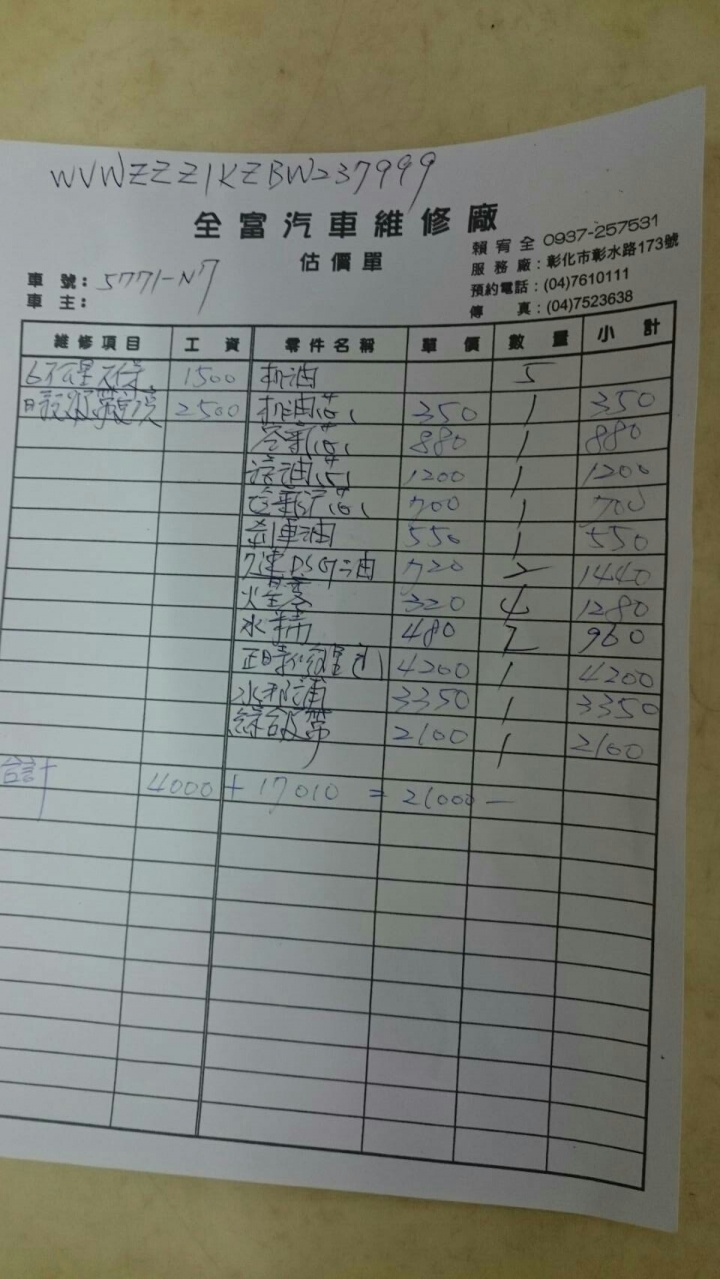 WVWZZZ1KZBW237999
全富汽車維修廠
估價單
賴宥全 0937-257531
服務廠：彰化市彰水路173號
預約電話：(04)7610111
傳真：(04)7523638
車號：5771-N7
車主：
維修項目 工資 零件名稱 單價 數量 小計
1500 机油 5
2500 机油 350 1 350
冷氣 880 1 880
1200 1 1200
700 1 700
刹車油 550 1 550
7速DSG油 720 2 1440
火星塞 320 4 1280
水精 480 2 960
正時 4200 1 4200
水邦浦 3350 1 3350
綜合皮帶 2100 1 2100
合計 4000 + 17010 = 21000 —